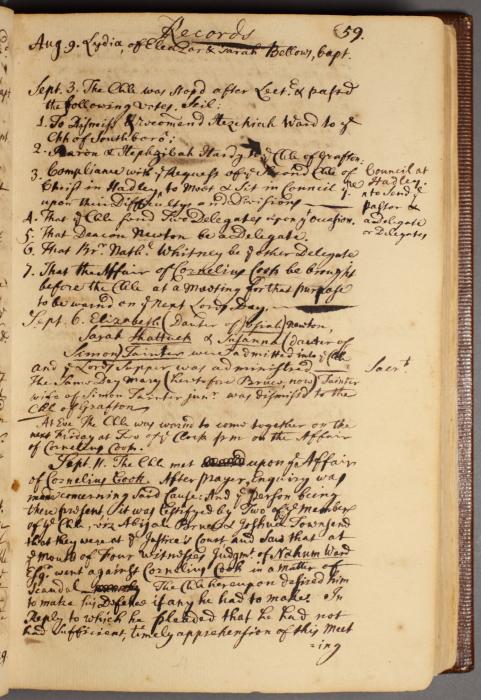 Records 59.
Aug 9. Lydia, of Eleazar & Sarah Bellows, bapt.
Sept. 3. The Chh was Stopd after Lect. & passd
the following Votes. Scil:
1. To Dismiss & recomend Hezekiah Ward to ye
Chh of Southboro';
2. Aaron & Hephzibah Hardy to ye Chh of Grafton.
3. Compliance with ye Request of ye Second Chh of
Christ in Hadley to Meet & Sit in Council
upon their Difficultys and Divisions
Council at
Hadley:
to Send ye
Pastor &
a delegate
or Delegates
4. That ye Chh send Two Delegates upon ye occasion.
5. That Deacon Newton be a Delegate.
6. That Br. Nathl. Whitney be ye other Delegate
7. That the Affair of Cornelius Cook be brought
before the Chh at a Meeting for that purpose
to be warnd on ye next Lords Day.
Sept 6. Elizabeth (Dauter of Josiah) Newton,
Sarah Shattuck & Susanna (dauter of
Simon) Tainter were admitted into ye Chh
and ye Lords Supper was administred
Sacrt
The Same Day Mary (heretofore Bruce, now) Tainter
wife of Simon Tainter junr. was dismiss'd to the
Chh of Grafton
At Eve The Chh was warnd to come together on the
next Friday at Two o' Clock p.m. on the Affair
of Cornelius Cook.
Sept. 11. The Chh met upon ye Affair
of Cornelius Cook. After prayer, Enquiry was
made concerning Said Cause: And ye person being
then present it was testifyed by Two of ye Members
of ye Chh, viz Abijah & Joshua Townsend
that they were at ye Justice's Court and Saw that at
ye Mouth of Four Witnesses Judgmt. of Nahum Ward
Esqr. went against Cornelius Cook in a Matter of
Scandal The Chh hereupon desired him
to make his Defence if any he had to make. In
Reply to which he pleaded that he had not
had Sufficient, timely apprehension of this Meet
=ing